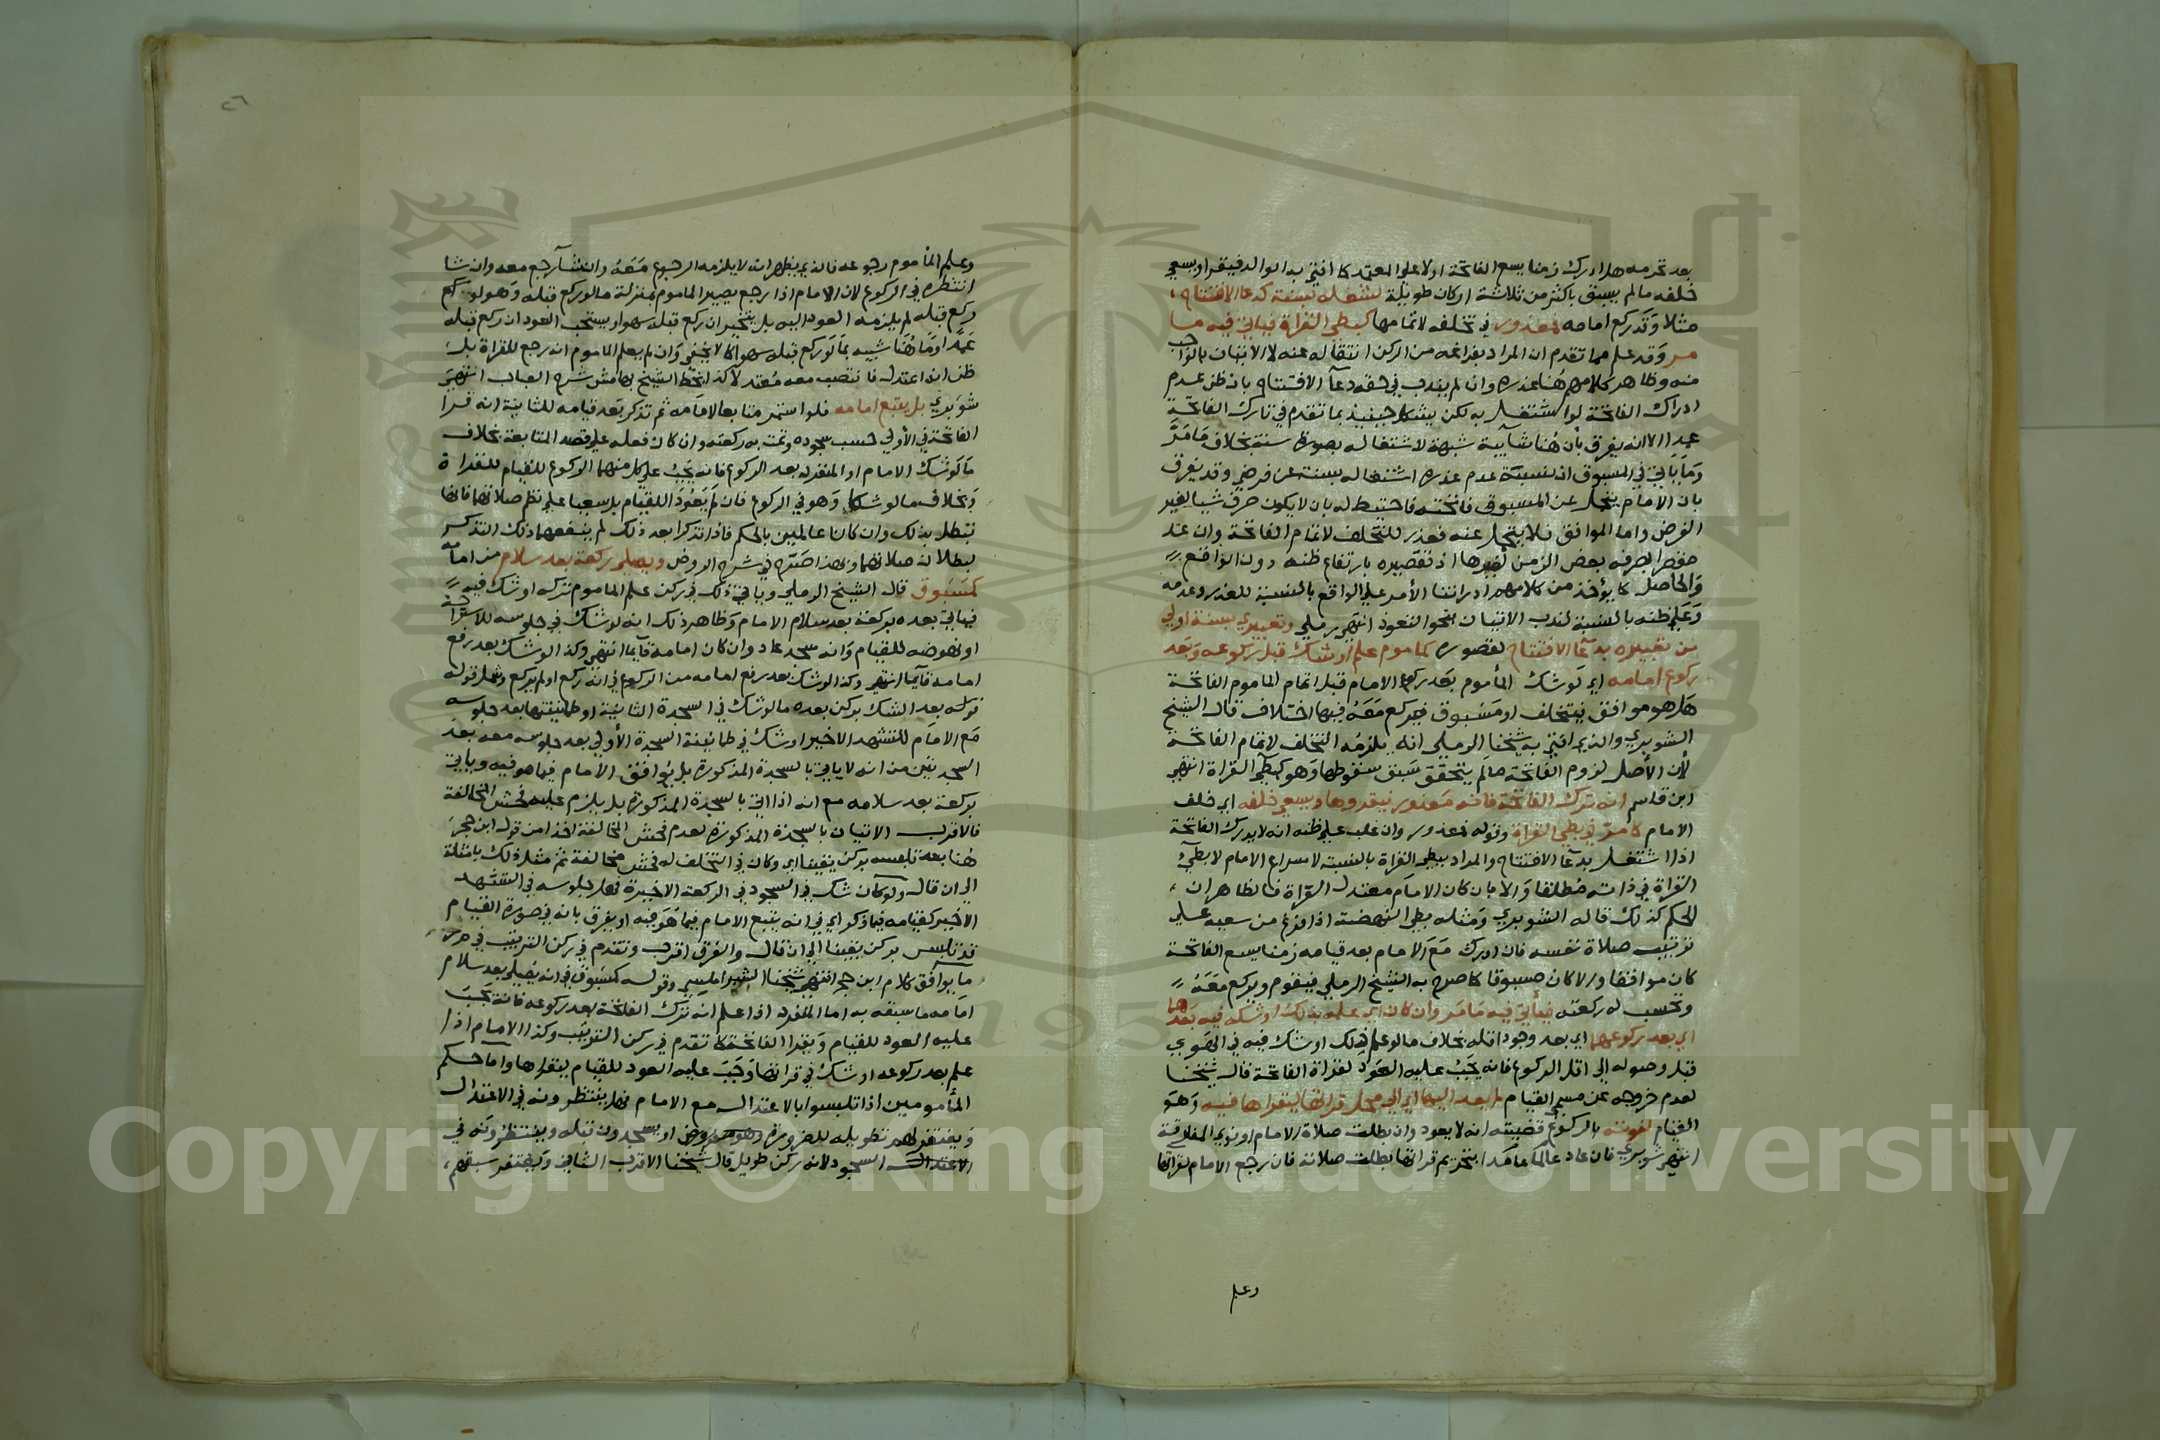 بعد تحرمه هل ادرك زمنا يسع الفاتحة اولا على المعتمد كما افتى به الوالد فيقرا ويسعي
خلفه ما لم يسبق باكثر من ثلاثة اركان طويلة لشغله بسنة كدعا الافتتاح
مثلا وقد ركع امامه فمعذور في تخلفه لاتمامها كبطي القراة فياتي فيه ما
مر وقد علم مما تقدم ان المراد بفراغه من الركن انتقاله عنه لا الاتيان بالواجب
منه وظاهر كلامهم هنا عذره وان لم يندب في حقه دعا الافتتاح بان ظن عدم
ادراك الفاتحة لو اشتغل به لكن يشكل حينئذ بما تقدم في تارك الفاتحة
عمدا الا انه يفرق بأن هنا شايبة شبهة لاشتغاله بصورة سنة بخلاف ما مر
وما ياتي في المسبوق ان سبب عدم عذره اشتغاله بسنة عن فرض وقد يفرق
بان الامام يتحمل عن المسبوق فاتحته فاحتيط له بان لا يكون صرف شيا لغير
الفرض واما الموافق فلا يتحمل عنه فعذر للتخلف لاتمام الفاتحة وان عد
مقصرا بصرفه بعض الزمن لغيرها اذ تقصيره بارتفاع ظنه دون الواقع
والحاصل كما يؤخذ من كلامهم ادرانا الأمر على الواقع بالنسبة للعذر وعدمه
وعلى ظنه بالنسبة لندب الاتيان بنحو التعوذ انتهى رملي وتعبيري بسنة اولي
من تعبيره بدعا الافتتاح لقصوره كماموم علم او شك قبل ركوعه وبعد
ركوع امامه اي لو شك المأموم بعد ركوع الامام قبل اتمام الماموم الفاتحة
هل هو موافق فيتخلف او مسبوق فيركع معه فيها اختلاف قال الشيخ
الشوبري والذي افتى به شيخنا الرملي انه يلزمه التخلف لاتمام الفاتحة
لأن الأصل لزوم الفاتحة ما لم يتحقق سبق سقوطها وهو كبطي القراة انتهى
ابن قاسم انه ترك الفاتحة فانه معذور فيقروها ويسعي خلفه اي خلف
الامام كما مر في بطي القراة وقوله فمعذور وان غلب على ظنه انه لا يدرك الفاتحة
اذا اشتغل بدعا الافتتاح والمراد ببطي القراة بالنسبة لاسراع الامام لا بطي
القراة في ذاته مطلقا والا بان كان الامام معتدل القراة فالظاهر ان
الحكم كذلك قاله الشوبري ومثله بطي النهضة اذا فرغ من سعيه على
ترتيب صلاة نفسه فان ادرك مع الامام بعد قيامه زمنا يسع الفاتحة
كان موافقا والا كان مسبوقا كما صرح به الشيخ الرملي فيقوم ويركع معه
وتحسب له ركعته فيأتي فيه ما مر وان كان اي علمه بذلك او شكه فيه بعدهما
اي بعد ركوعهما اي بعد وجود اقله بخلاف ما لو علم ذلك او شك فيه في الهوي
قبل وصوله الى اقل الركوع فانه يجب عليه العود لقراة الفاتحة قال شيخنا
لعدم خروجه عن مسمي القيام لم يعد اليها اي الي محل قراتها ليقراها فيه وهو
القيام لفوته بالركوع قضيته انه لا يعود وان بطلت صلاة الامام او نوي المفارقة
انتهى شوبري فان عاد عالما عامدا بتحريم قراتها بطلت صلاته فان رجع الامام لقراتها
وعلم
٢٦
وعلم الماموم رجوعه فالذي يظهر انه لا يلزمه الرجوع معه وان شا رجع معه وان شا
انتظره في الركوع لان الامام اذا رجع يصير الماموم بمنزلة ما لو ركع قبله وهو لو ركع
ركع قبله لم يلزمه العود اليه بل يتخير ان ركع قبله سهوا ويستحب العود ان ركع قبله
عمدا وما هنا شبيه بما لو ركع قبله سهوا كما لا يخفى وان لم يعلم الماموم انه رجع للقراة بل
ظن انه اعتدل فانتصب معه معتدلا كذا بخط الشيخ بهامش شرح العباب انتهى
شوبري بل يتبع امامه فلو استمر متابعا لامامه ثم تذكر بعد قيامه للثانية انه قرا
الفاتحة في الأولي حسب سجوده وتمت به ركعته وان كان فعله على قصد المتابعة بخلاف
ما لو شك الامام او المنفرد بعد الركوع فانه يجب على كل منهما الركوع للقيام للقراة
وبخلاف ما لو شكا وهو في الركوع فان لم يعودا للقيام بل سعيا على نظم صلاتهما فانها
تبطل بذلك وان كانا عالمين بالحكم فاذا تذكرا بعد ذلك لم ينفعهما ذلك التذكر
بطلان صلاتهما وبهذا صرح في شرح الروض ويصلي ركعة بعد سلام من امامه
كمسبوق قال الشيخ الرملي وياتي ذلك في ركن علم الماموم تركه او شك فيه
فياتي بعده بركعة بعد سلام الامام وظاهر ذلك انه لو شك في جلوسه للاستراحة
او نهوضه للقيام وانه سجد عاد وان كان امامه قايما انتهى وكذا لو شك بعد رفع
امامه قايما انتهى وكذا لو شك بعد رفع امامه من الركوع في انه ركع او لم يركع ومثل قوله
قوله بعد الشك بركن بعده ما لو شك في السجدة الثانية او طمانينتها بعد جلوسه
مع الامام للتشهد الاخير او شك في طمانينة السجدة الأولي بعد جلوسه معه بعد
السجدتين من انه لا ياتي بالسجدة المذكورة بل يوافق الامام فيما هو فيه وياتي
بركعة بعد سلامه مع انه اذا اتي بالسجدة المذكورة بل يلزم عليه فحش المخالفة
فالاقرب الاتيان بالسجدة المذكورة لعدم فحش المخالفة اخذا من قول ابن حجر
هنا بعد تلبسه بركن يقينا اي وكان في التخلف له فحش مخالفة ثم مثل ذلك بامثلة
الي ان قال ولو كان شك في السجود في الركعة الاخيرة فهل جلوسه في التشهد
الاخير كقيامه فيما ذكر اي في انه يتبع الامام فيما هو فيه او يفرق بانه في صورة القيام
قد تلبس بركن يقينا الي ان قال والفرق اقرب وتقدم في ركن الترتيب
ما يوافق كلام ابن حجر انتهى شيخنا الشبراملسي وقوله كمسبوق في انه يصلي بعد سلام
امامه ما سبقه به اما المنفرد اذا علم انه ترك الفاتحة بعد ركوعه فانه يجب
عليه العود للقيام ويقرا الفاتحة كما تقدم في ركن الترتيب وكذا الامام اذا
علم بعد ركوعه او شك في قراتها وجب عليه العود للقيام ليقراها واما حكم
المأمومين اذا تلبسوا بالاعتدال مع الامام فهل ينتظرونه في الاعتدال
ويغتفر لهم تطويله للضرورة او يسجدون قبله وينتظرونه في
السجود لانه ركن طويل قال شيخنا الاقرب الثاني ويغتفر سبقهم
Copyright © King Saud University
1957